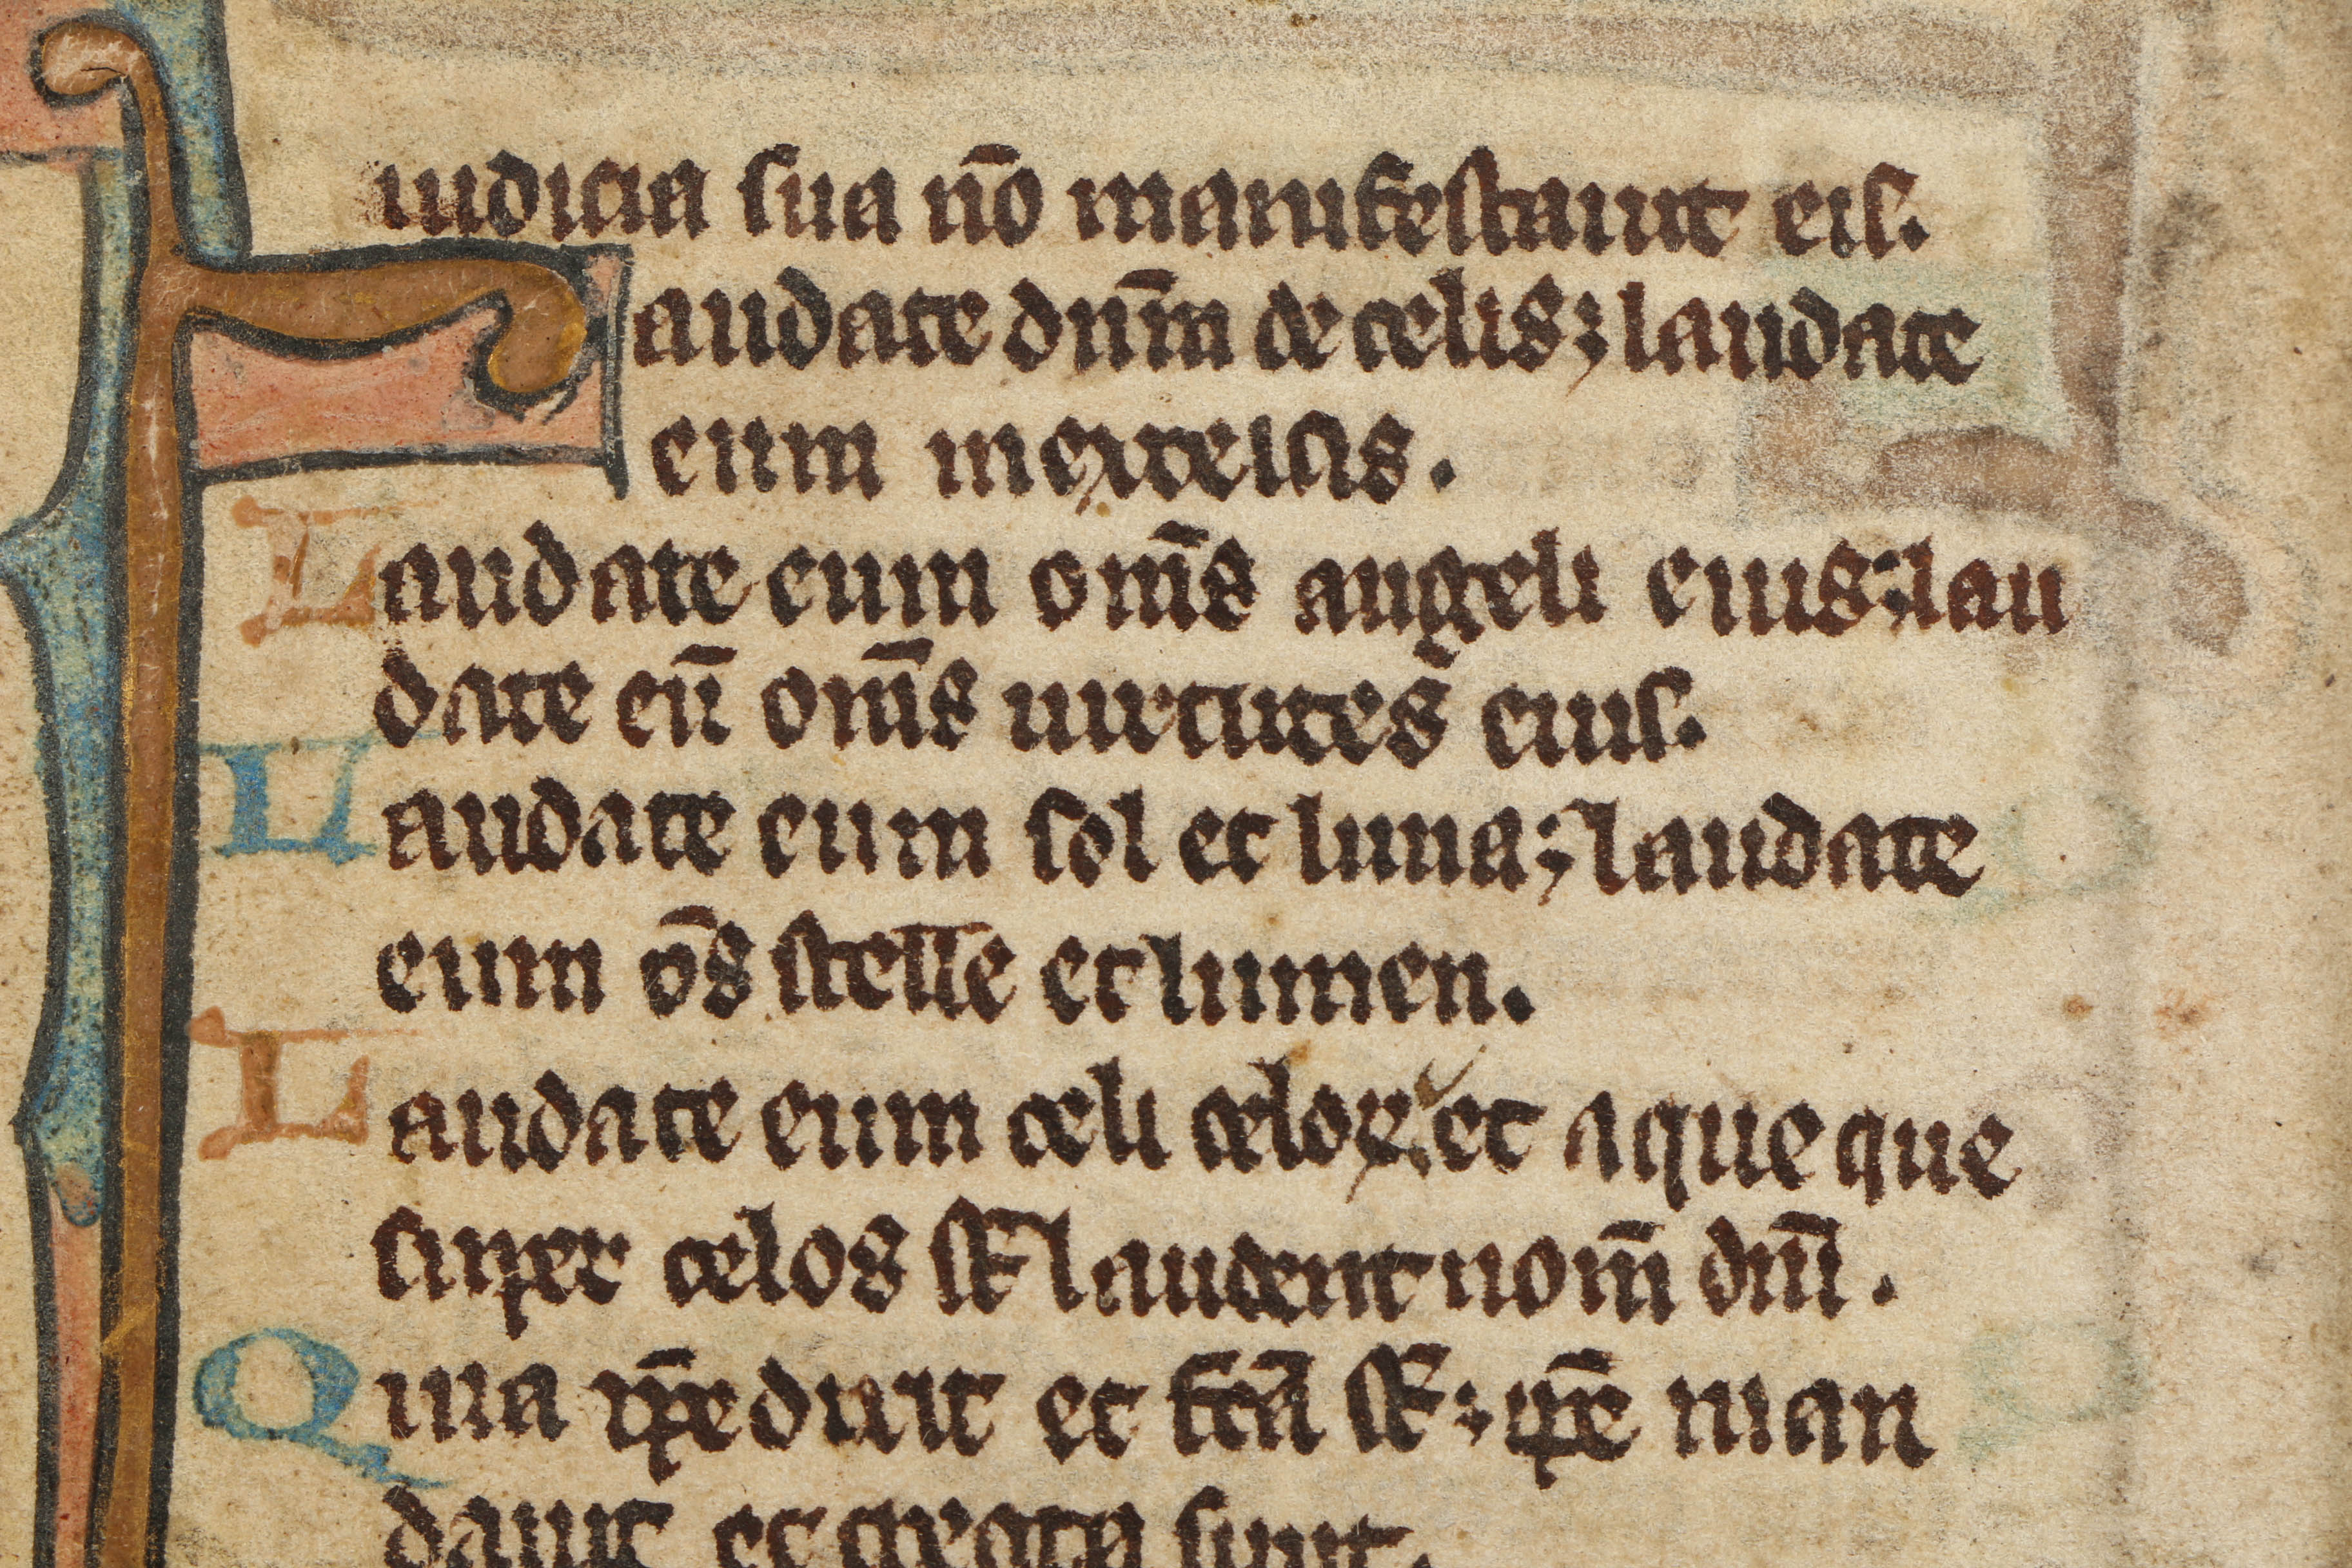 iudicia sua nō manifestauit eis.
Laudate dn̄m de celis; laudate
eum in excelsis.
Laudate eum om̄s angeli eius; lau
date eū om̄s uirtutes eius.
Laudate eum sol et luna; laudate
eum ōs stelle et lumen.
Laudate eum celi celoꝝ et aque que
super celos st̄ laudent nom̄ dn̄i.
Quia ip̄e dixit et fc̄a st̄; ip̄e man
dauit et creata sunt.